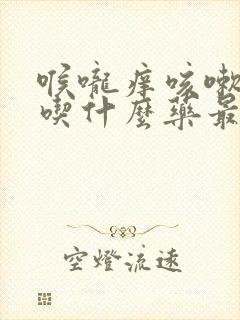 喉嚨痒咳嗽
喫什麼藥最
空燈流遠